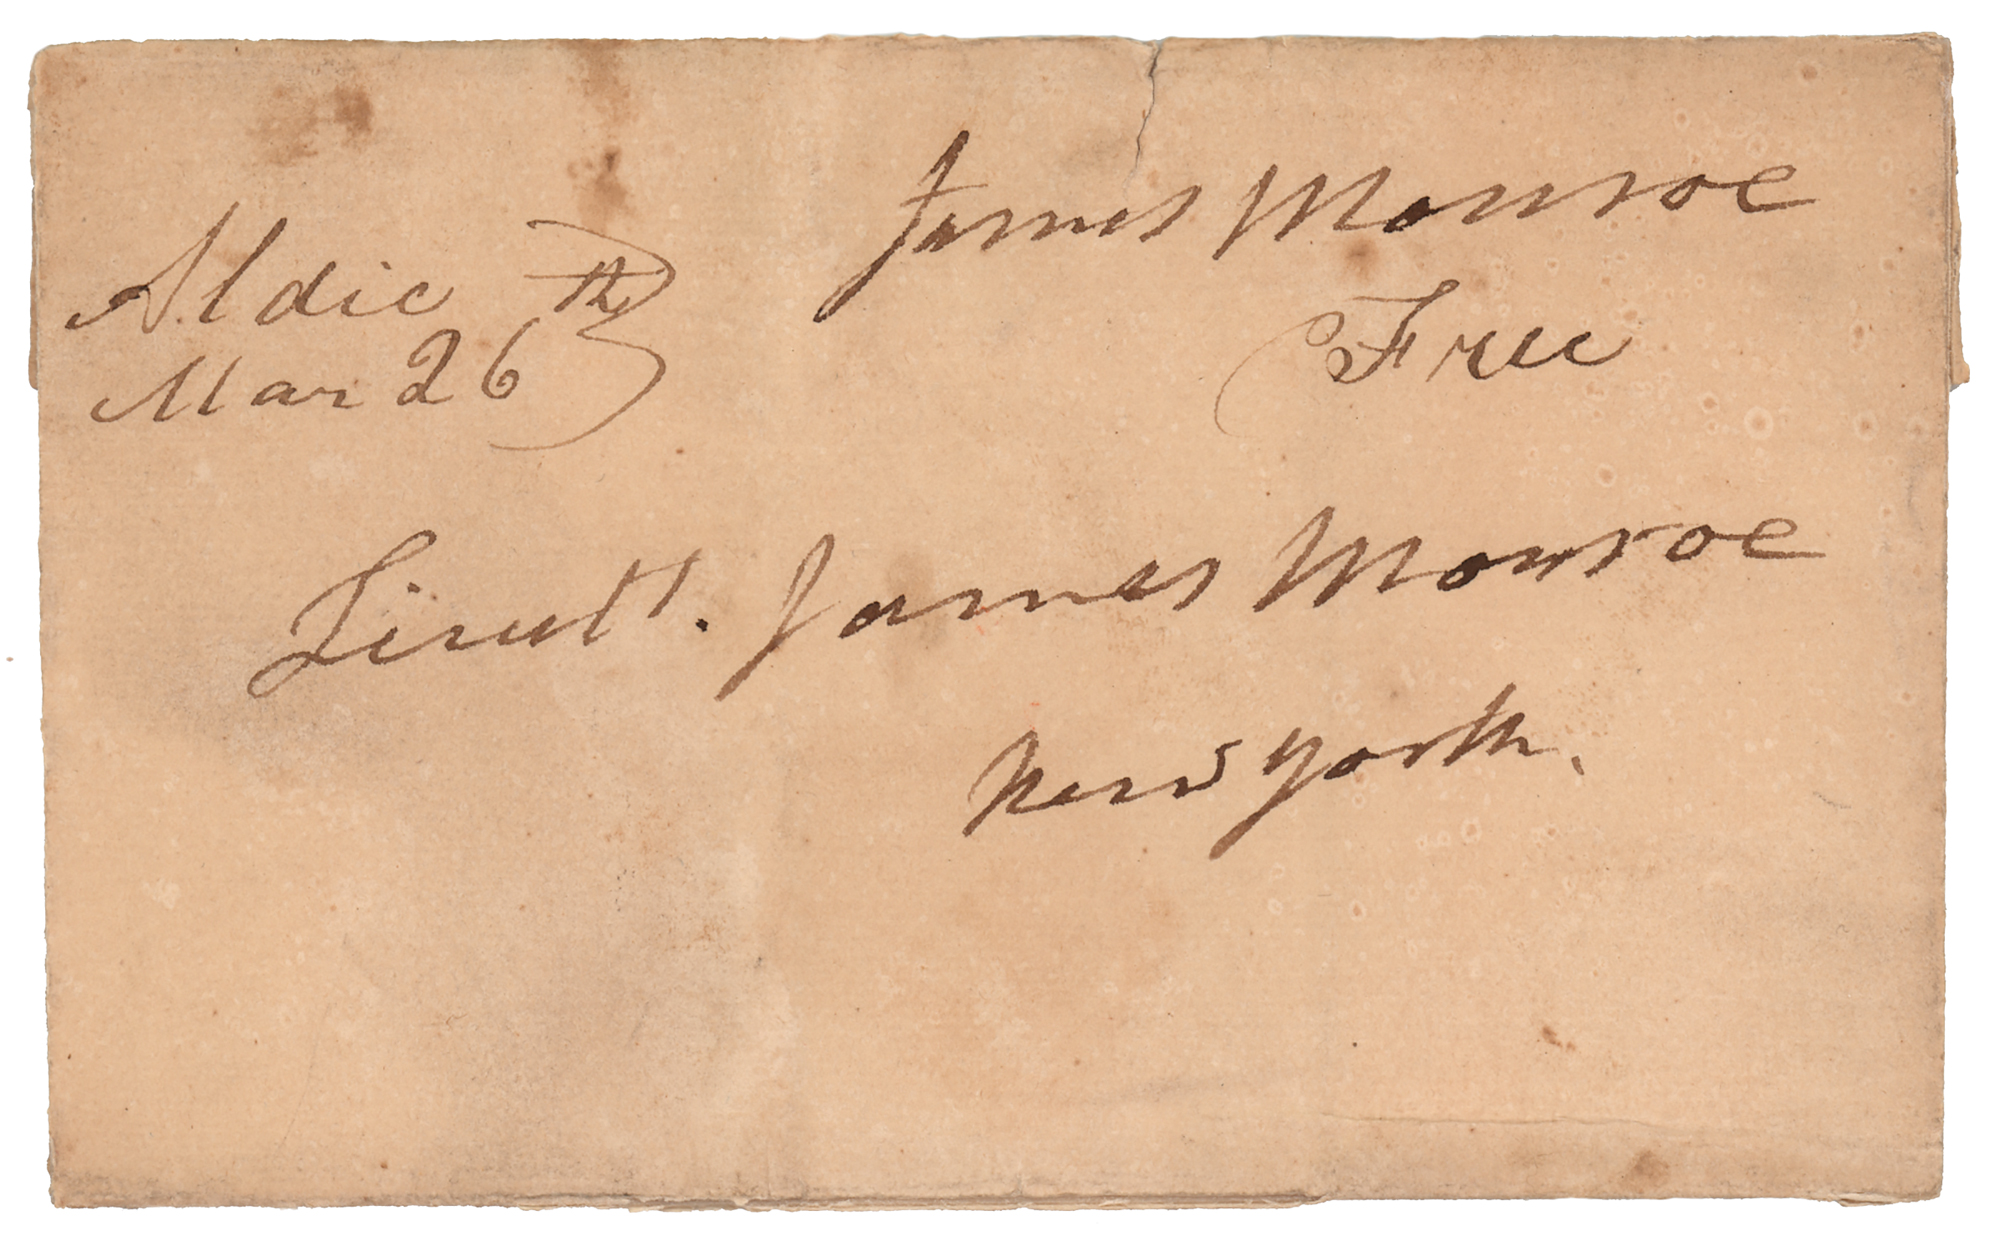 James Monroe
Aldie th
Mar 26
Free
Lieutt. James Monroe
New York.